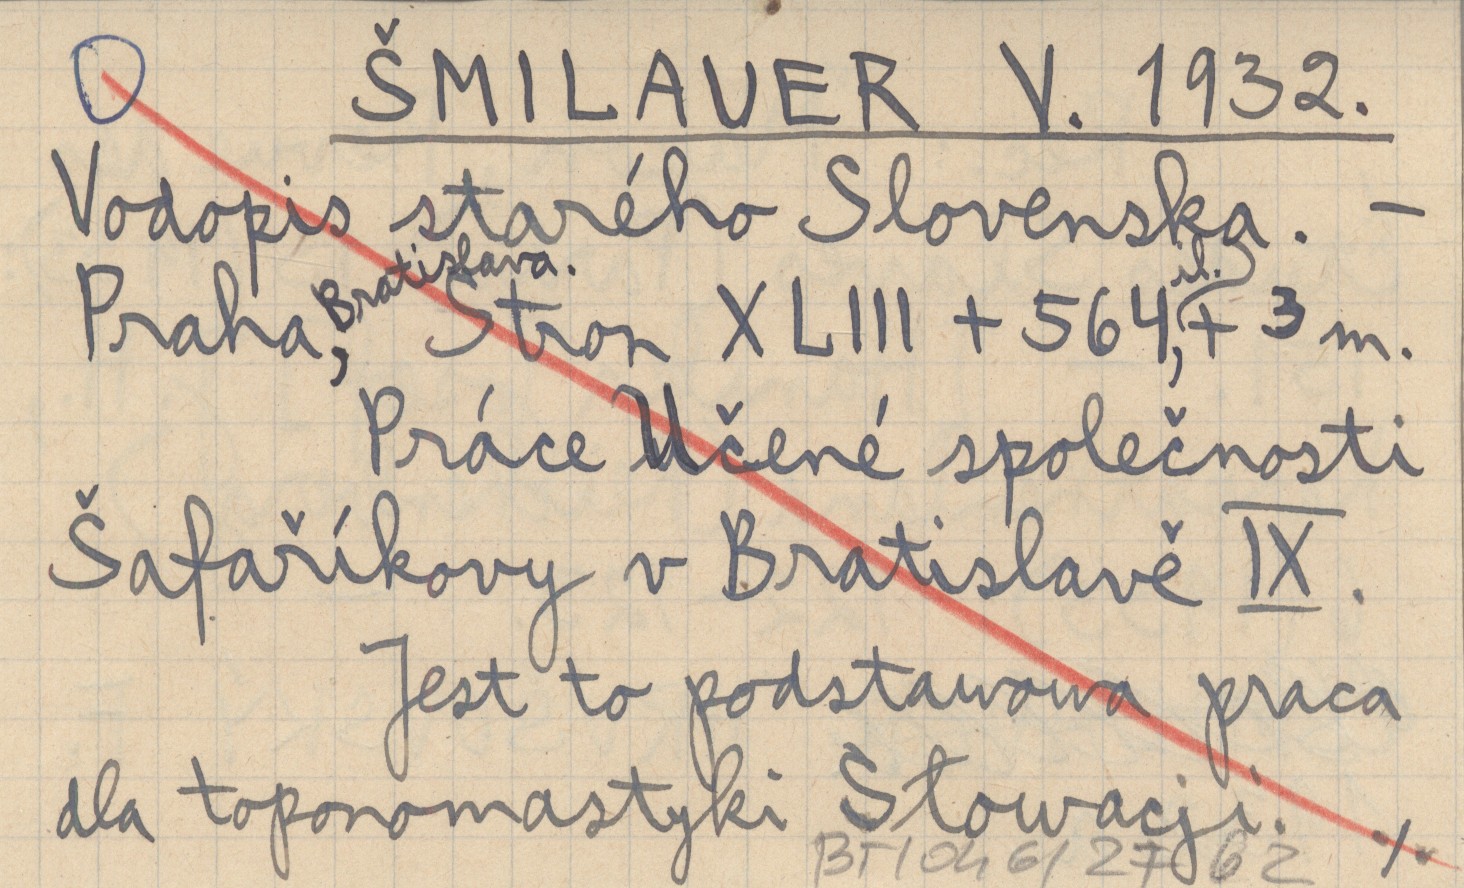 ŠMILAUER V. 1932.
Vodopis starého Slovenska. –
Praha, Bratislava. Stron XLIII + 564, il. + 3 m.
Práce Učené společnosti
Šafaříkovy v Bratislavě IX.
Jest to podstawowa praca
dla toponomastyki Słowacji. ./.
BT/046/27 62